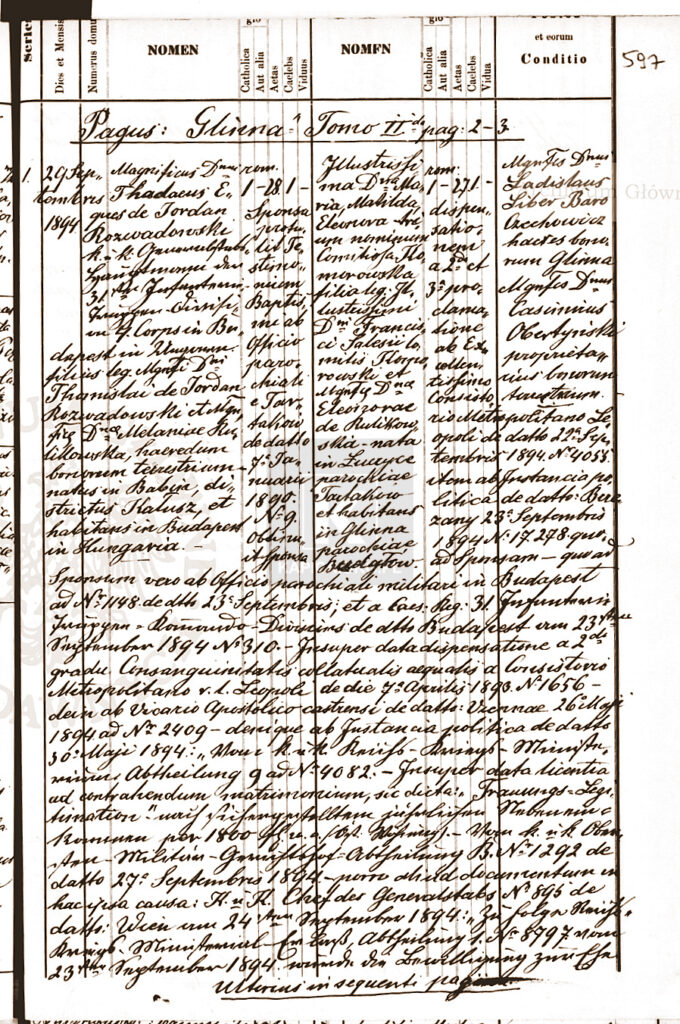 Serie
Dies et Mensis
Numerus domu
NOMEN
Catholica
Aut alia
Aetas
Caelebs
Viduus
NOMFN
Catholica
Aut alia
Aetas
Caelebs
Vidua
et eorum
Conditio
597
Pagus: Glinna Tomo II do pag: 2-3.
1.
29 Sep-
tembris
1894
Magnificus Dnus
Thadaeus E-
ques de Jordan
Rozwadowski
k. u. k. Generalstabs
Hauptmann der
31. ten Infanterie
Truppen-Divisi-
in 4 Corps in Bu-
dapest in Ungarn
filius leg. Mgnfci Dni
Thomislai de Jordan
Rozwadowski et Mgn-
fcę Dnae Melaniae Ru-
likowska, haeredum
bonorum terrestrium
natus in Babin, di-
strictus Kalusz, et
habitans in Budapest
in Hungaria. -
rom.
1 - 28 1 -
Sponsa
protu-
lit Te-
stimo-
nium
Baptis-
mi ab
Officio
paro-
chiali
e Tar-
takow
de datto
7. Ja-
nuarii
1890.
Nº 9.
Obtinu-
it Sponsa
Illustrissi-
ma Dna Ma-
ria, Matilda,
Eleonora tri-
um nominum
Comitissa Ko-
morowska
filia leg. Il-
lustrissimi
Dni Francis-
ci Salesii Co-
mitis Komo-
rowski et
Mgnfcę Dnae
Eleonorae
de Rulikow-
skie nata
in Łuczyce
parochiae
Tartakow
et habitans
in Glinna
parochiae
Budyłow.
rom.
1 - 27 1 -
dispen-
satio-
nem
a 2da et
3a pro-
clama-
tione
ab Ex-
cellen-
tissimo
Consisto-
rio Metropolitano Le-
opoli de datto 22a Sep-
tembris 1894. Nº 4055
item ab Instancia po-
litica de datto: Brze
zany 23a Septembris
1894 Nº 17.278. quo-
ad Sponsam - quoad
Mgnfcs Dnus
Ladislaus
Liber Baro
Czechowicz
haeres bono-
rum Glinna
Mgnfcs Dnus
Casimirus
Obertyński
proprieta-
rius bonorum
terrestrium.
Sponsum vero ab Officio parochiali militari in Budapest
ad Nº 1148. de dtto 23a Septembris; et a Caes. Reg. 31. Infanterie
Truppen-Komando-Divisions de dtto Budapest am 23 ten
September 1894 Nº 310. - Insuper data dispensatione a 2do
gradu Consanguinitatis collateralis aequalis a Consistorio
Metropolitano r. l. Leopoli de die 7a Aprilis 1893. Nº 1656 -
dein ab Vicario Apostolico castrensi de datto: Viennae 26a Maji
1894 ad Nº 2409 - denique ab Instancia politica de datto
30a Maji 1894: „Vom k. u. k. Reichs-Kriegs-Ministe-
rium Abtheilung 9 ad Nº 4082. - Insuper data licentia
ad contrahendum matrimonium, sic dicta: „Trauungs-Legi-
timation" nach sichergestelltem jährlichen Nebenein-
kommen per 1800 fl. ö. w. - Vom k. u. k. Ober-
sten-Militär-Gerichtshof-Abtheilung B. Nº 1292 de
datto 27a Septembris 1894 - porro aliud documentum in
hac ipsa causa: K. u. K. Chef des Generalstabs Nº 895 de
datto: Wien am 24 ten September 1894: „Zu folge Reichs-
Kriegs-Ministerial-Erlass, Abtheilung 1. Nº 8797 vom
23 ten September 1894 wurde die Bewilligung zur Ehe
Ulterius in sequenti pagina